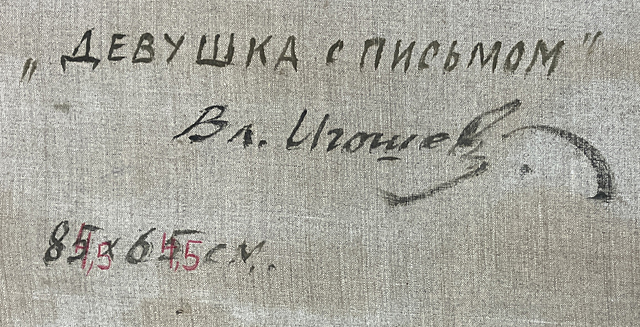 „ДЕВУШКА с ПИСЬМОМ"
Вл. Игошев.
85х65см.
4,5 4,5